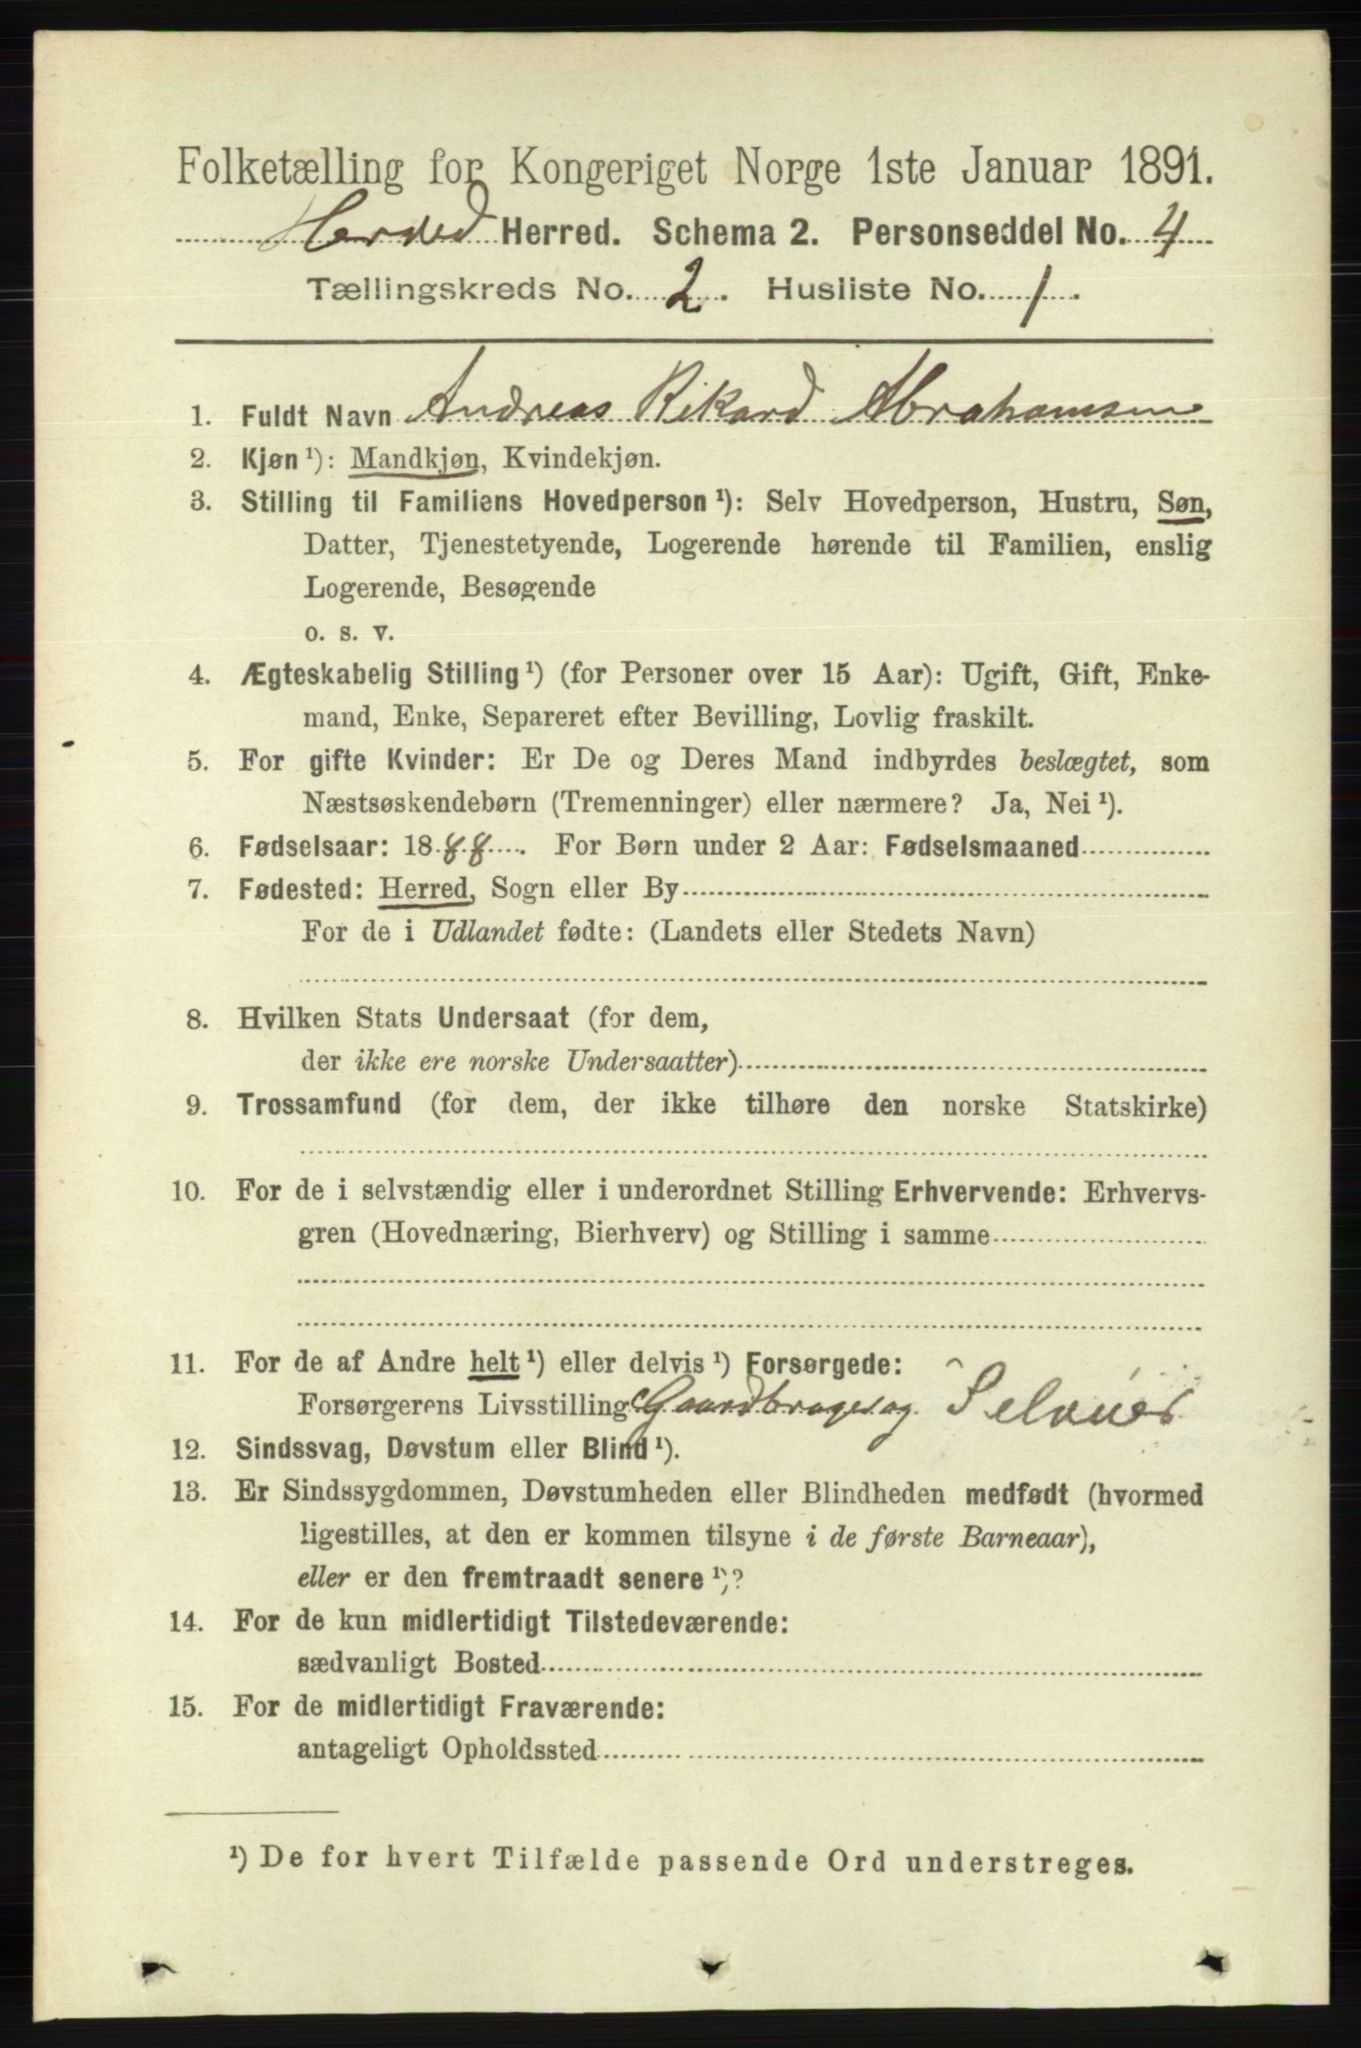 Folketælling for Kongeriget Norge 1ste Januar 1891.
Herred. Schema 2. Personseddel No. 4
Tællingskreds No. 2. Husliste No. 1.
1. Fuldt Navn Andreas Rikard Abrahamsen
2. Kjøn ¹): Mandkjøn, Kvindekjøn.
3. Stilling til Familiens Hovedperson ¹): Selv Hovedperson, Hustru, Søn,
Datter, Tjenestetyende, Logerende hørende til Familien, enslig
Logerende, Besøgende
o. s. v.
4. Ægteskabelig Stilling ¹) (for Personer over 15 Aar): Ugift, Gift, Enke-
mand, Enke, Separeret efter Bevilling, Lovlig fraskilt.
5. For gifte Kvinder: Er De og Deres Mand indbyrdes beslægtet, som
Næstsøskendebørn (Tremenninger) eller nærmere? Ja, Nei ¹).
6. Fødselsaar: 1888. For Børn under 2 Aar: Fødselsmaaned
7. Fødested: Herred, Sogn eller By
For de i Udlandet fødte: (Landets eller Stedets Navn)
8. Hvilken Stats Undersaat (for dem,
der ikke ere norske Undersaatter)
9. Trossamfund (for dem, der ikke tilhøre den norske Statskirke)
10. For de i selvstændig eller i underordnet Stilling Erhvervende: Erhvervs-
gren (Hovednæring, Bierhverv) og Stilling i samme
11. For de af Andre helt ¹) eller delvis ¹) Forsørgede:
Forsørgerens Livsstilling Gaardbruger og Selveier
12. Sindssvag, Døvstum eller Blind ¹).
13. Er Sindssygdommen, Døvstumheden eller Blindheden medfødt (hvormed
ligestilles, at den er kommen tilsyne i de første Barneaar),
eller er den fremtraadt senere ¹)?
14. For de kun midlertidigt Tilstedeværende:
sædvanligt Bosted
15. For de midlertidigt Fraværende:
antageligt Opholdssted
¹) De for hvert Tilfælde passende Ord understreges.